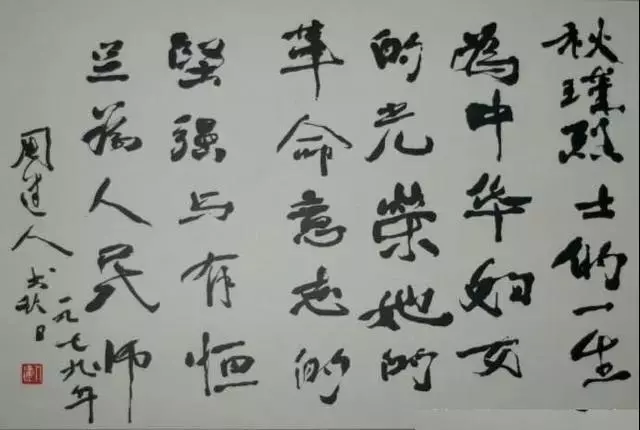 秋瑾烈士的一生
为中华妇女
的光荣她的
革命意志的
堅强与有恒
足为人民师
一九七九年
秋日
周建人书